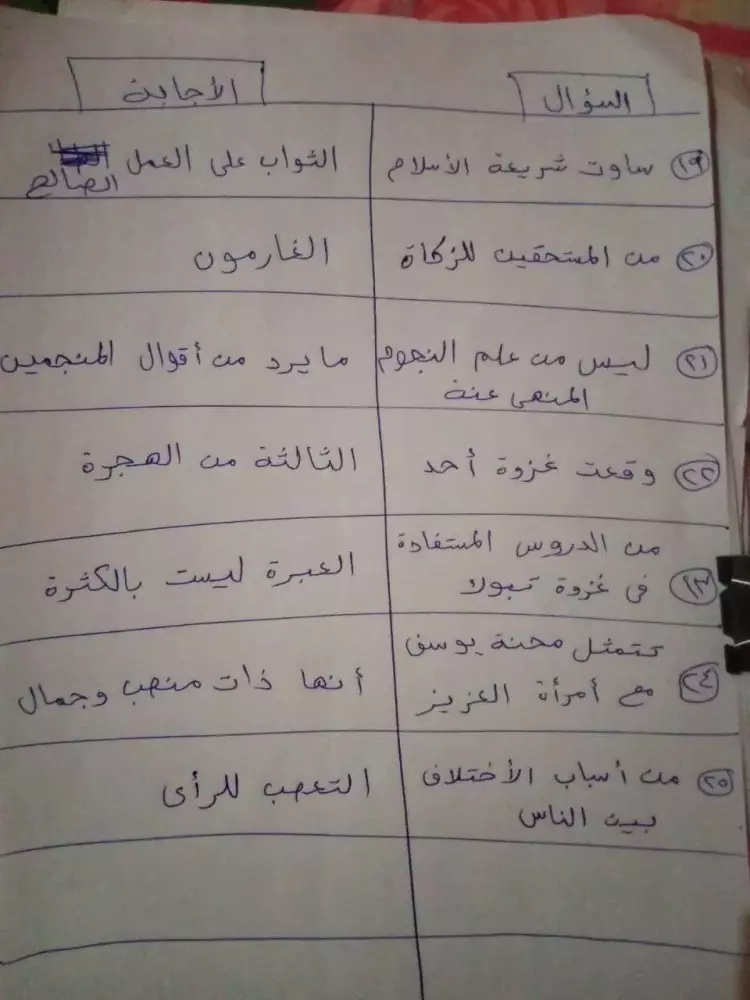 السؤال
الأجابة
١٩ ساوت شريعة الأسلام
الثواب على العمل
الصالح
٢٠ من المستحقين للزكاة
الغارمون
٢١ ليس من علم النجوم
المنهى عنة
ما يرد من أقوال المنجمين
٢٢ وقعت غزوة أحد
الثالثة من الهجرة
من الدروس المستفادة
١٣ فى غزوة تبوك
العبرة ليست بالكثرة
تتمثل محنة يوسف
٢٤ مع أمرأة العزيز
أنها ذات منصب وجمال
٢٥ من أسباب الأختلاف
بين الناس
التعصب للرأى